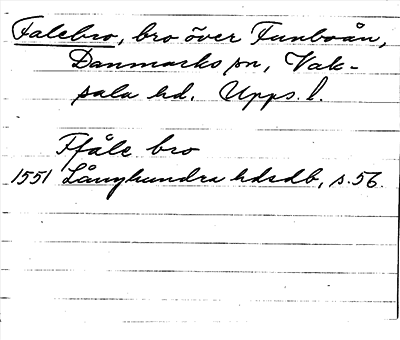 Falebro, bro över Funboån,
Danmarks sn, Vak-
sala hd. Upps. l.
Ffåle bro
1551 Långhundra hdsdb, s. 56.